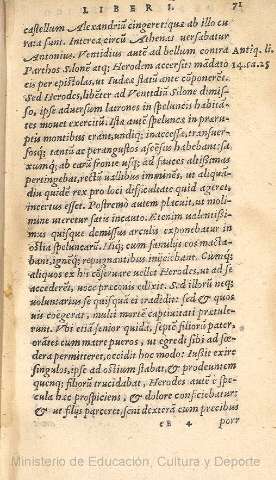 LIBER I.
71
castellum Alexandriũ cingeret: quæ ab illo cu
rata sunt. Interea circũ Athenas uersabatur
Antonius. Ventidius autẽ ad bellum contra
Antiq. li.
Parthos Silonẽ atq; Herodem accersit: mãdato
14.ca.25
eis per epistolas, ut Iudææ statũ ante cõponerẽt.
Sed Herodes, libẽter ad Ventidiũ Silone dimis-
so, ipse aduersum latrones in speluncis habitã-
tes mouet exercitũ. Istæ autẽ speluncæ in præru-
ptis montibus erant, undiq; inaccessæ, transuer-
sosq; tantũ ac perangustos ascẽsus habebant: sa
xumq; ab earũ fronte usq; ad fauces altissimas
pertingebat, rectũ uallibus imminẽs, ut aliquã-
diu quidẽ rex pro loci difficultate quid ageret,
incertus esset. Postremò autem placuit, ut moli-
mine uteretur satis incauto. Etenim ualentissi-
mus quisque demissus arculis exponebatur in
ostia speluncarũ. Hiq; cum familijs eos macta-
bant, ignẽq; repugnantibus inijciebant. Cumq;
aliquos ex his cõseruare uellet Herodes, ut ad se
accederẽt, uoce præconis edixit. Sed illorũ neq;
uoluntarius se quisquã ei tradidit: sed & quos
uis coëgerat, multi mortẽ captiuitati prætule-
runt. Vbi etiã senior quidã, septẽ filiorũ pater,
orãtes cum matre pueros, ut egredi sibi ad fœ-
dera permitteret, occidit hoc modo: Iussit exire
singulos, ipse ad ostium stabat, & prodeuntem
quemq; filiorũ trucidabat, Herodes autẽ è spe-
cula hæc prospiciens, & dolore conficiebatur:
& ut filijs parceret, seni dexterã cum precibus
cB 4
porr
Ministerio de Educación, Cultura y Deporte